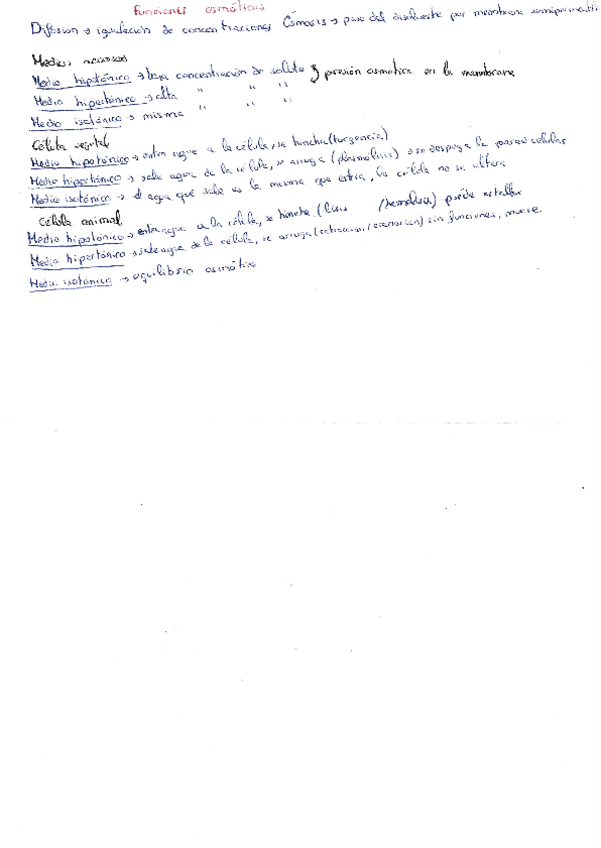 Funciones osmóticas
Difusión → igualación de concentraciones Ósmosis → paso del disolvente por membrana semipermeable
Medios acuosos
Medio hipotónico → baja concentración de soluto y presión osmótica en la membrana
Medio hipertónico → alta " " "
Medio isotónico → misma " " "
Célula vegetal
Medio hipotónico → entra agua a la célula, se hincha (turgencia)
Medio hipertónico → sale agua de la célula, se arruga (plasmólisis) → se despega la pared celular
Medio isotónico → el agua que sale es la misma que entra, la célula no se altera
Célula animal
Medio hipotónico → entra agua a la célula, se hincha (lisis /hemólisis) puede estallar
Medio hipertónico → sale agua de la célula, se arruga ( / ) sin funciones, muere.
Medio isotónico → equilibrio osmótico